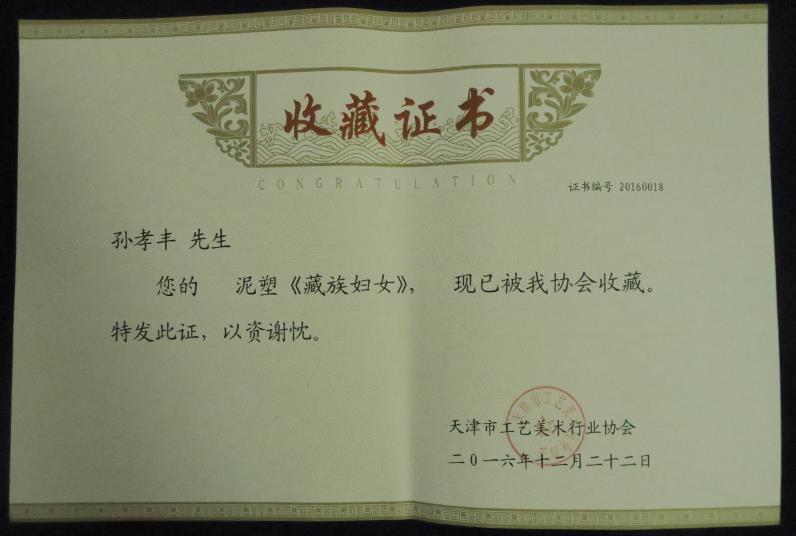 收藏证书
CONGRATULATION
证书编号 20160018
孙孝丰 先生
您的 泥塑《藏族妇女》， 现已被我协会收藏。
特发此证，以资谢忱。
天津市工艺美术行业协会
二0一六年十二月二十二日